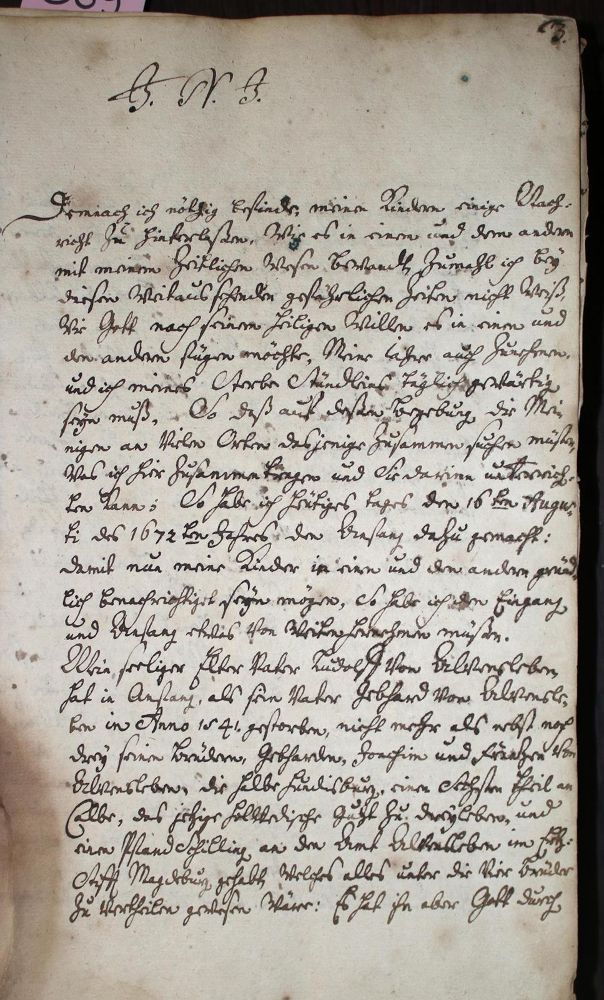 3.
J. N. J.
Demnach ich nöthig befinde, meinen Kindern einige Nach-
richt zu hinterlaßen, Wie es in einem und dem andern
mit meinem Zeitlichen Wesen bewandt, Zumahl ich bey
diesen Weitaussehenden gefährlichen Zeiten nicht Weiß,
Wie Gott nach seinem heiligen Willen es in einen und
den anderen fügen möchte, Meine Jahre auch Zunehmen,
und ich meines Sterbe Stündleins täglich gewärtig
seyn muß, So daß auf deßen begebung die Mei
nigen an Vielen Orten dasjenige Zusammen suchen müsten,
Was ich hier Zusammen bringen und Sie darinn unterrich-
ten kann; So habe ich heütiges tages den 16ten Augus-
ti des 1672ten Jahres den Anfang dazu gemacht:
damit nun meine Kinder in einen und den anderen gründ-
lich benachrichtiget seyn mögen, So habe ich den Eingang
und Anfang etwas Von Weiten hernehmen müßen.
Mein seeliger Elter Vater Ludolff Von Alvensleben,
hat in Anfang, als sein Vater Gebhard Von Alvensle-
ben in Anno 1541. gestorben, nicht mehr als nebst noch
drey seinen Brüdern, Gebharden, Joachim und Frantzen Von
Alvensleben, die halbe Hundisburg, einen Sechsten theil an
Calbe, das jetzige Guht Zu dreyleben, und
einen Pfand Schilling an den Amt Alvensleben im Ertz-
Stifft Magdeburg gehabt, Welches alles unter die Vier brüder
Zu Vertheilen gewesen Wäre: Es hat ihn aber Gott durch